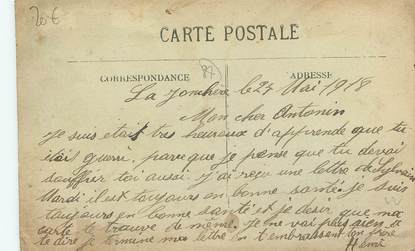 20€
CARTE POSTALE
87
CORRESPONDANCE
ADRESSE
La Jonchère le 27 Mai 1918
Mon cher Antonin
Je suis était tres heureux d'apprende que tu
était guerri, parce que je pense que tu devai
souffrir toi aussi. J'ai reçu une lettre de Sylvain
Mardi il est toujours en bonne santé. Je suis
toujours en bonne santé et je desir que ma
carte te trouve de même. Je ne vai plus rien a
te dire je termine mes lettre en t'embrassant ton frere